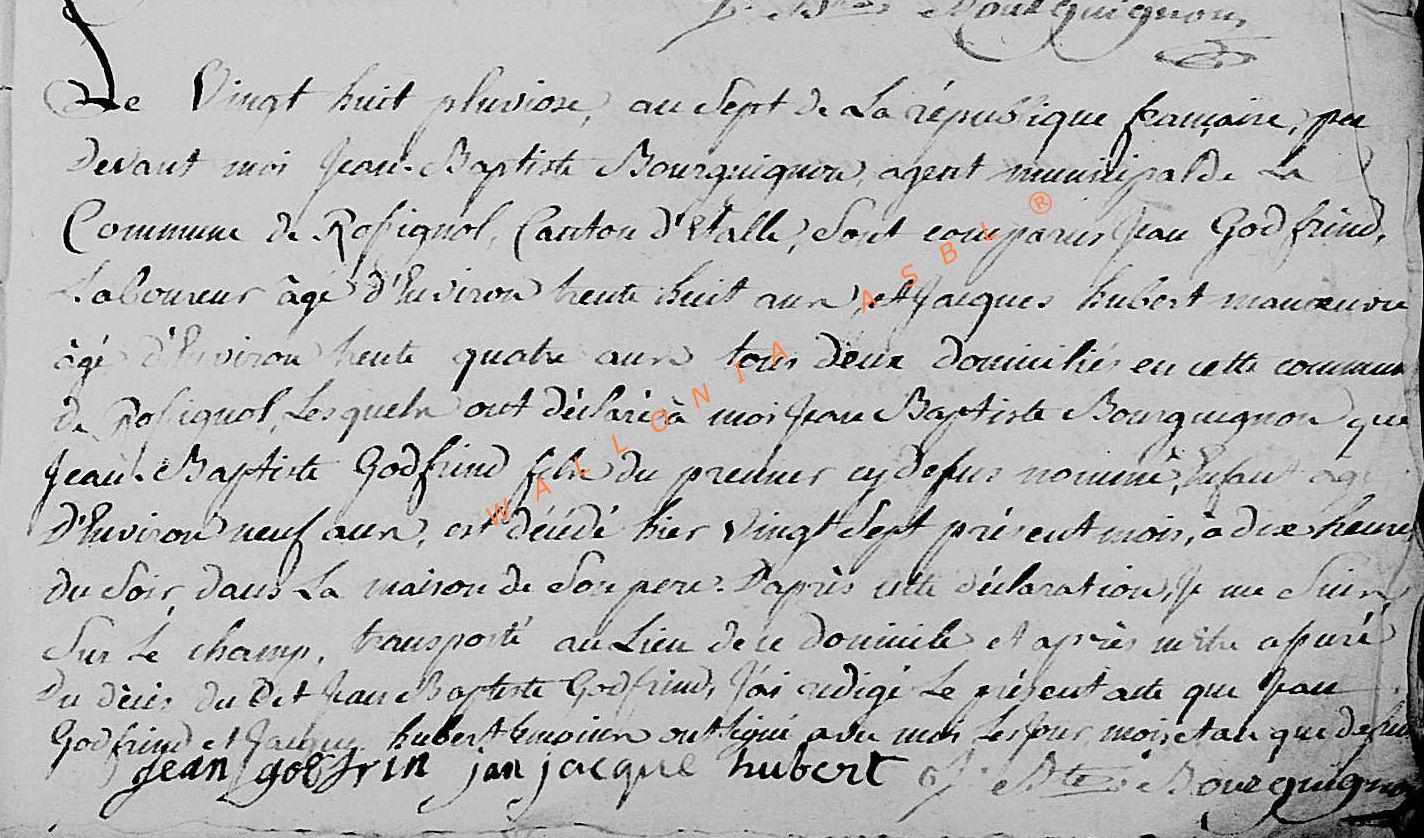 J. Btes Bourguignon
Le Vingt huit pluviose, an Sept de La république française, par
Devant moi Jean-Baptiste Bourguignon, agent municipal de La
Commune de Rossignol, Canton d'Etalle, Sont comparus Jean Godfrind,
Laboureur âgé d'Environ trente huit ans, et Jacques hubert manœuvre
âgé d'Environ trente quatre ans tous deux domiciliés en cette commune
de Rossignol, Lesquels ont déclaré à moi Jean Baptiste Bourguignon que
Jean-Baptiste Godfrind fils du premier cy dessus nommé, Enfant agé
d'Environ neuf ans, est décédé hier vingt Sept présent mois, à dix heures
du Soir, dans La maison de Son pere. D'après cette déclaration, Je me Suis
Sur Le champ, transporté au Lieu de ce domicile et après m'être assuré
Du décès du dit Jean Baptiste Godfrind, J'ai redigé Le présent acte que Jean
Godfrind et Jacques hubert temoins ont signé avec moi Les Jour, mois et an que dessus
jean godfrin jan jacque hubert J. Btes Bourguignon
WALLONIA ASBL ®